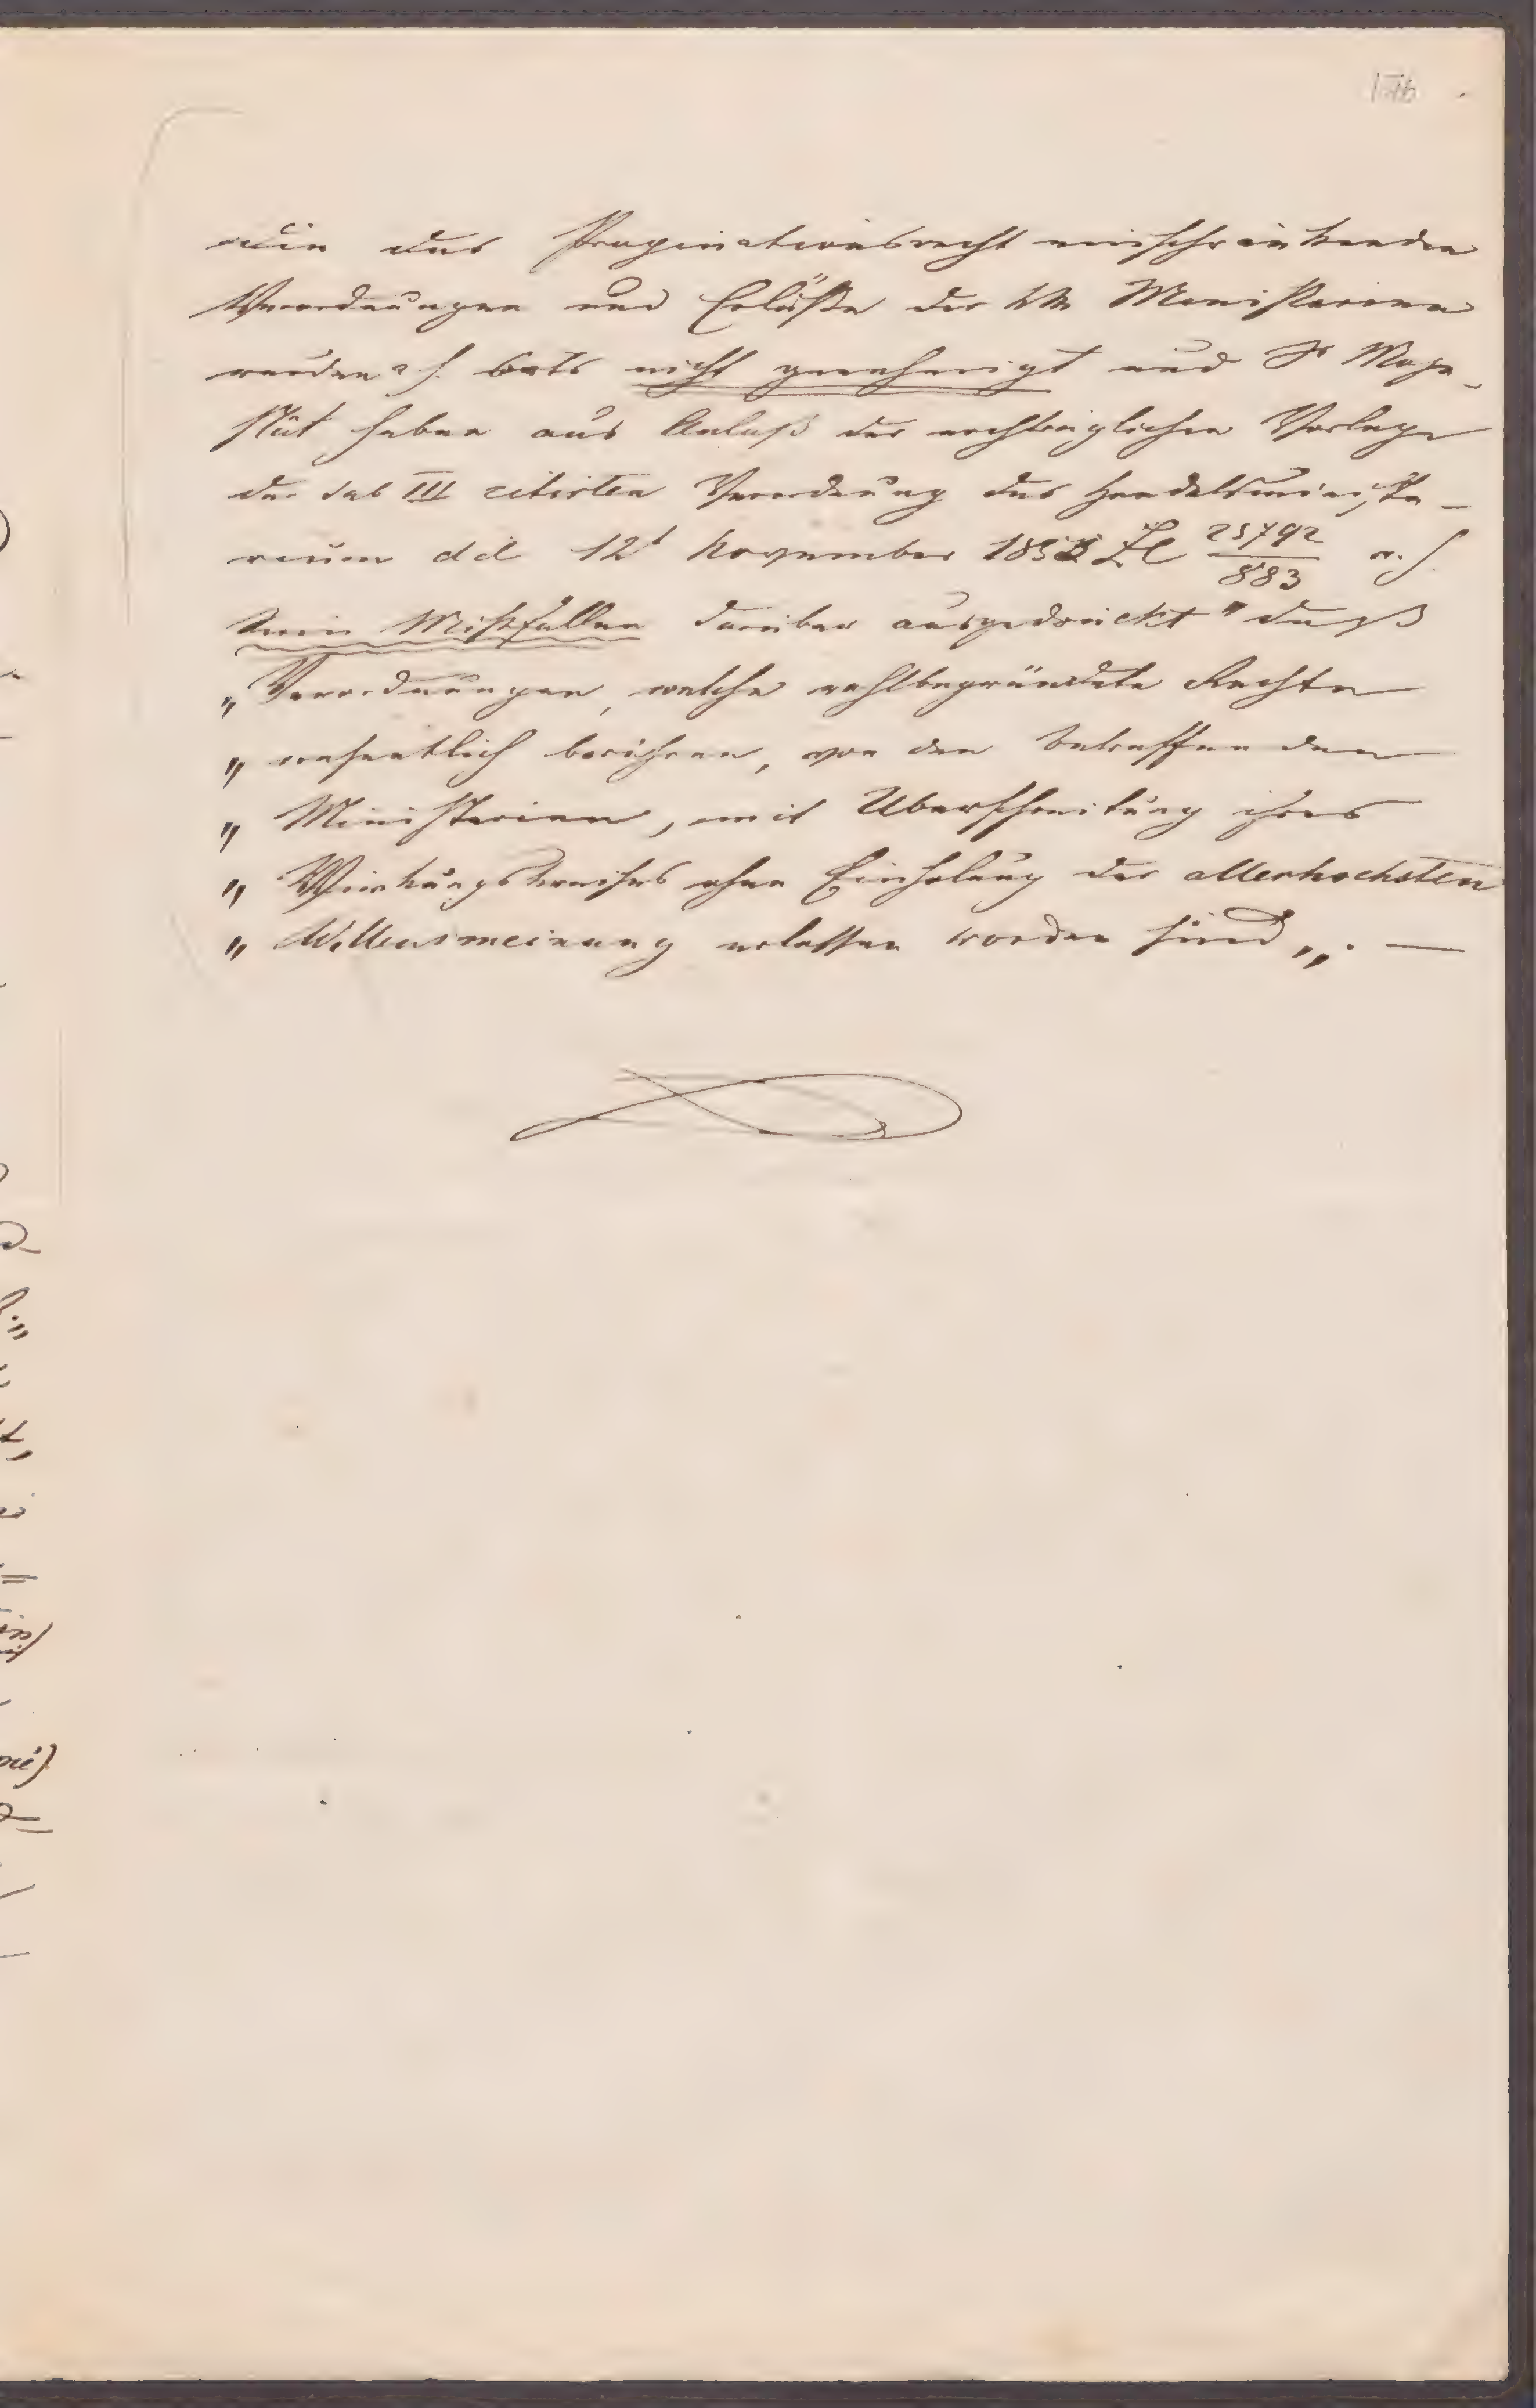 Die das Propinationsrecht einschränkenden
Verordnungen und Erläße der kk Ministerien
wurden a. h. Orts nicht genehmigt und Sr Maje-
stät haben aus Anlaß der nachträglichen Vorlage
der sub III citirten Verordnung des Handelsministe-
riums dd 12t November 1853 Zl 25792/883 a. h.
Sein Mißfallen darüber ausgedrückt "daß
„ Verordnungen, welche wohlbegründete Rechte
„ wesentlich berühren, von den betreffenden
„ Ministerien, mit Überschreitung ihres
„ Wirkungskreises ohne Einholung der allerhochsten
„ Willensmeinung erlassen worden sind „. —